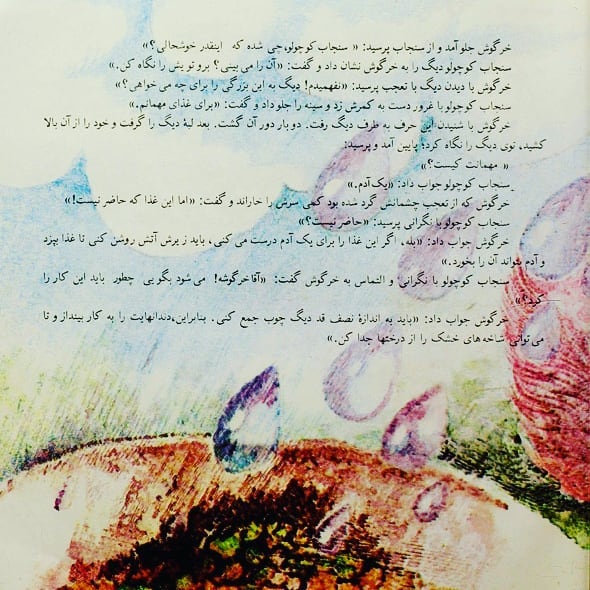 خرگوش جلو آمد و از سنجاب پرسید: « سنجاب کوچولو، چی شده که اینقدر خوشحالی؟»
سنجاب کوچولو دیگ را به خرگوش نشان داد و گفت: «آن را می‌بینی؟ برو تویش را نگاه کن.»
خرگوش با دیدن دیگ با تعجب پرسید: «نفهمیدم! دیگ به این بزرگی را برای چه می‌خواهی؟»
سنجاب کوچولو با غرور دست به کمرش زد و سینه را جلو داد و گفت: «برای غذای مهمانم.»
خرگوش با شنیدن این حرف به طرف دیگ رفت. دو بار دور آن گشت. بعد لبهٔ دیگ را گرفت و خود را از آن بالا
کشید، توی دیگ را نگاه کرد؛ پایین آمد و پرسید:
« مهمانت کیست؟»
سنجاب کوچولو جواب داد: «یک آدم.»
خرگوش که از تعجب چشمانش گرد شده بود کمی سرش را خاراند و گفت: «اما این غذا که حاضر نیست!»
سنجاب کوچولو با نگرانی پرسید: «حاضر نیست؟»
خرگوش جواب داد: «بله، اگر این غذا را برای یک آدم درست می‌کنی، باید زیرش آتش روشن کنی تا غذا بپزد
و آدم بتواند آن را بخورد.»
سنجاب کوچولو با نگرانی و التماس به خرگوش گفت: «آقا خرگوشه! می‌شود بگویی چطور باید این کار را
کنم؟»
خرگوش جواب داد: «باید به اندازهٔ نصف قد دیگ چوب جمع کنی. بنابراین، دندانهایت را به کار بینداز و تا
می‌توانی شاخه‌های خشک را از درختها جدا کن.»